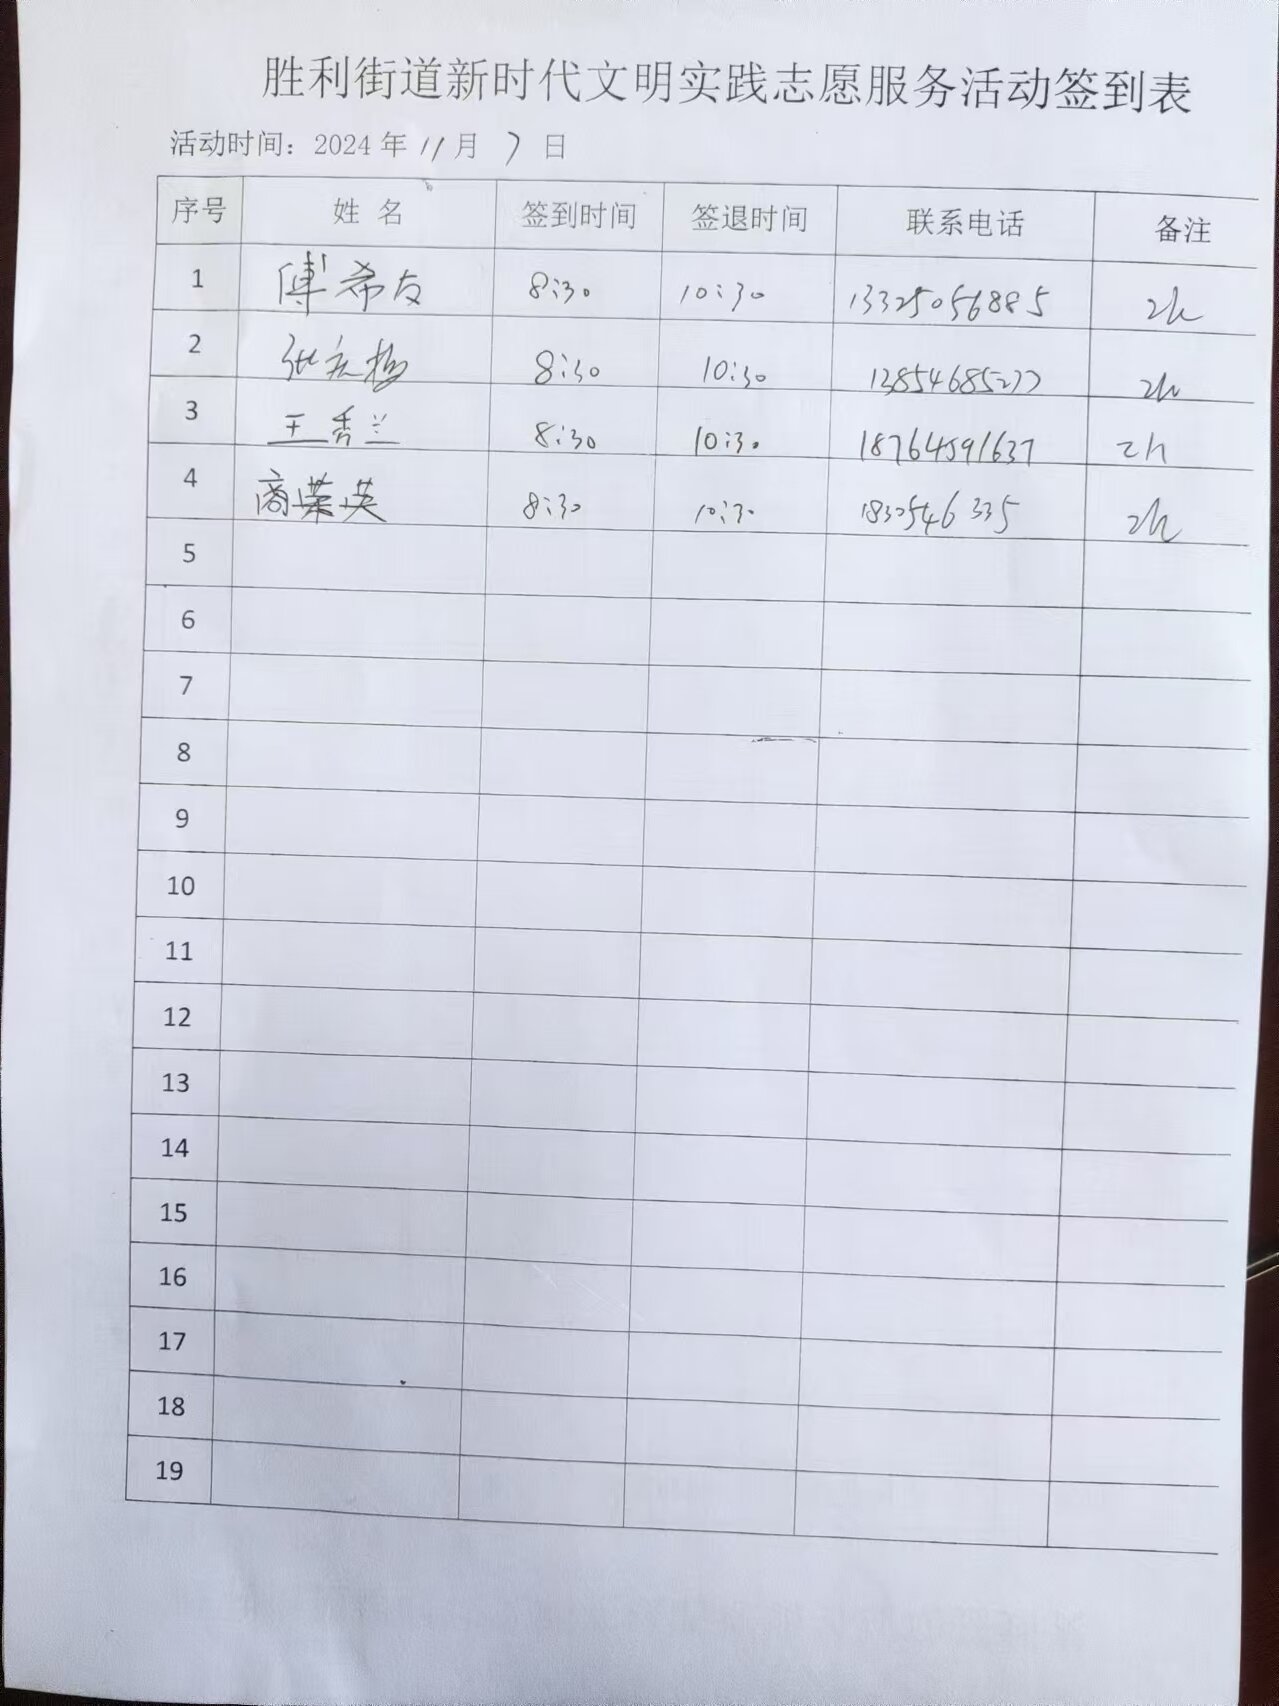 胜利街道新时代文明实践志愿服务活动签到表
活动时间：2024 年 11 月 7 日
序号 姓 名 签到时间 签退时间 联系电话 备注
1 傅希友 8:30 10:30 13325056885 2h
2 8:30 10:30 13854685277 2h
3 王秀兰 8:30 10:30 18764591637 2h
4 商荣英 8:30 10:30 2h
5
6
7
8
9
10
11
12
13
14
15
16
17
18
19